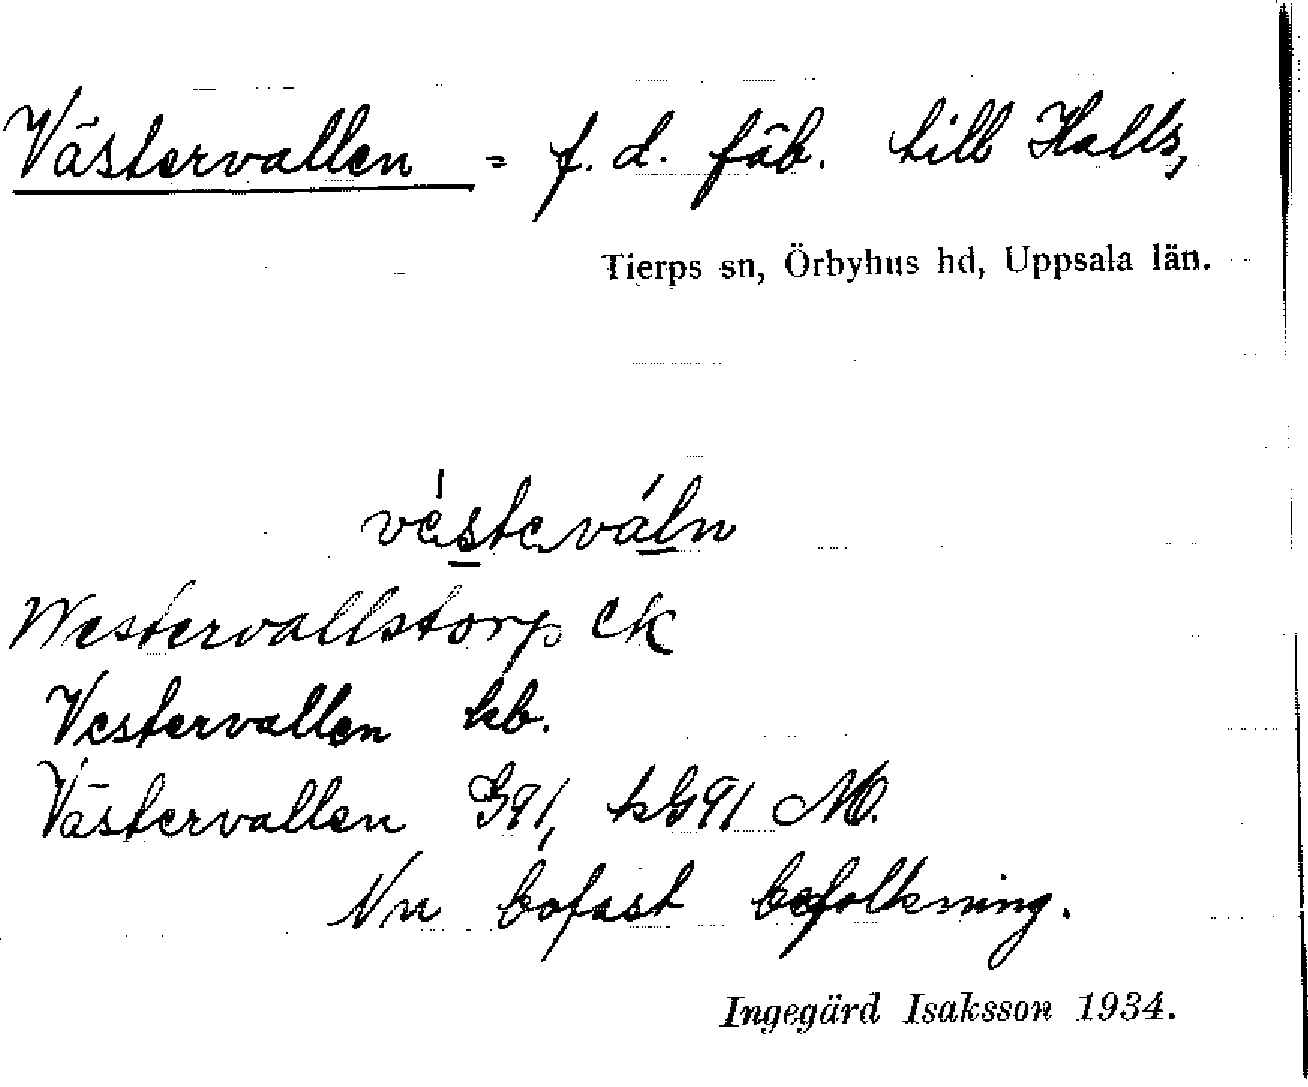 Västervallen = f. d. fäb. till Halls,
Tierps sn, Örbyhus hd, Uppsala län.
vésteváln
Westervallstorp EK
Vestervallen kb.
Västervallen G91, kG91 MO.
Nu bofast befolkning.
Ingegärd Isaksson 1934.